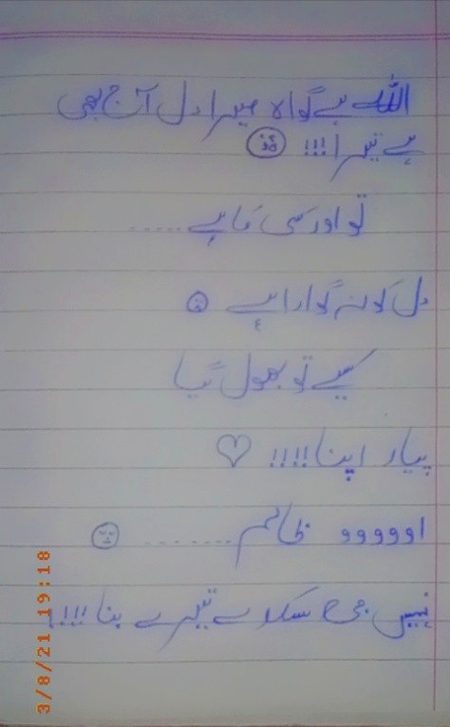 اللہ ہے گواہ میرا دل آج بھی
ہے تیرا !!!
تو اور کسی کا ہے ......
دل کو نہ گوارا ہے
کیسے تو بھول گیا
پیار اپنا !!!!
اووووو ظالم ........
نہیں جی سکدا تیرے بنا !!!!
3/8/21 19:18